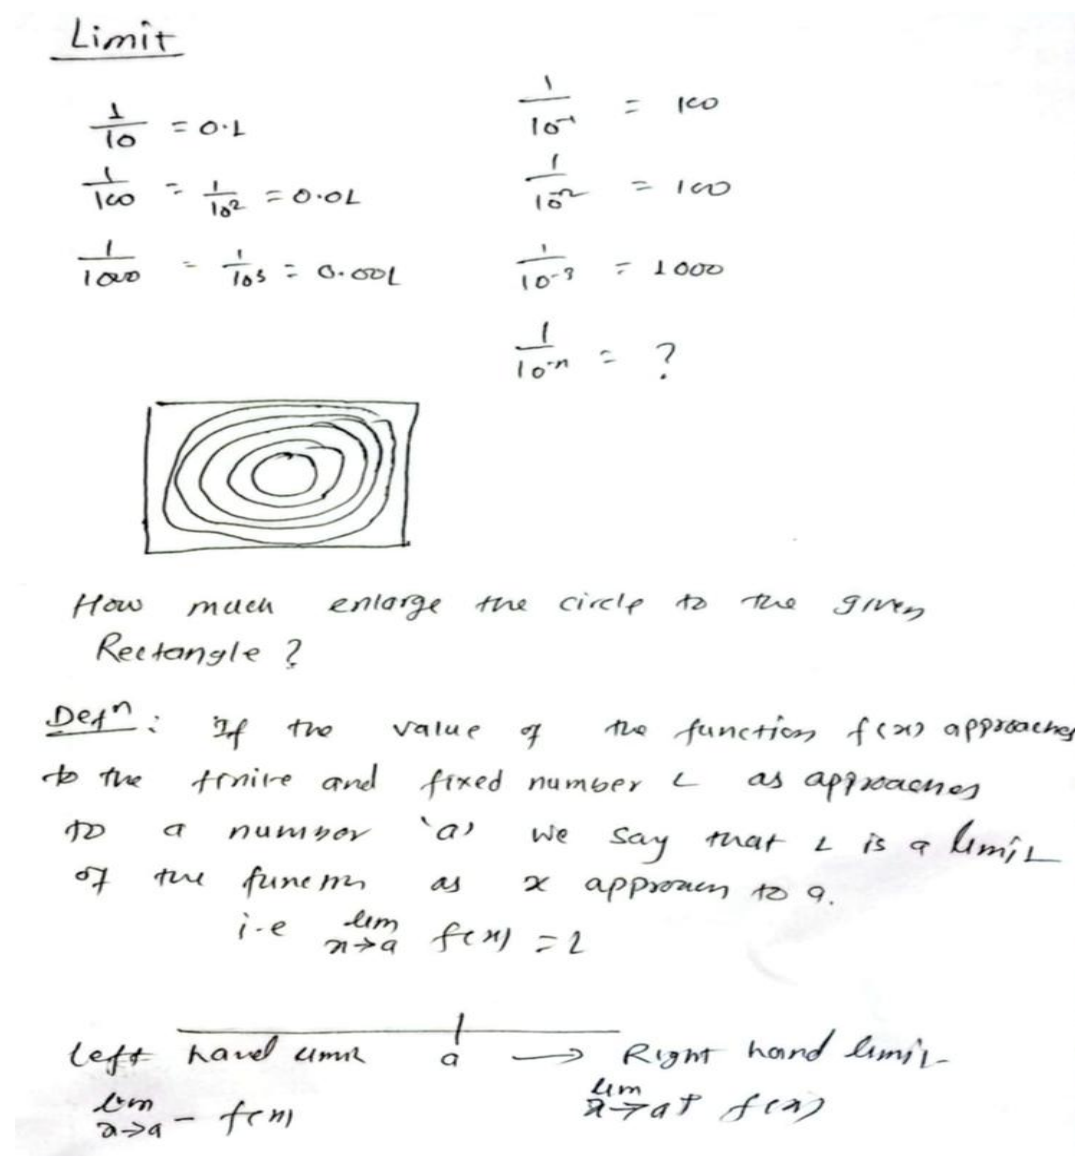 Limit
1/10 = 0.1
1/100 = 1/10² = 0.01
1/1000 = 1/10³ = 0.001
1/10⁻¹ = 100
1/10⁻² = 100
1/10⁻³ = 1000
1/10⁻ⁿ = ?
How much enlarge the circle to the given
Rectangle ?
Defⁿ : If the value of the function f(x) approaches
to the finite and fixed number L as approaches
to a number 'a' we say that L is a limit
of the function as x approach to a.
i.e lim x→a f(x) = l
a
Left hand limit → Right hand limit
lim x→a⁻ f(x)
lim x→a⁺ f(x)